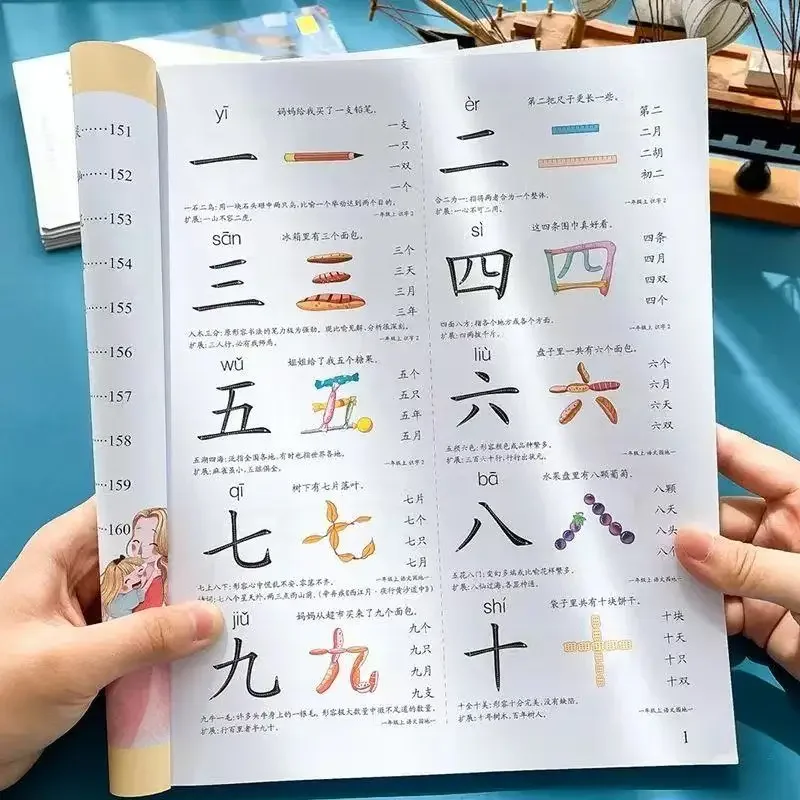 151
152
153
154
155
156
157
158
159
160
yī
妈妈给我买了一支铅笔。
一
一支
一只
一双
一个
一石二鸟：用一块石头砸中两只鸟，比喻一个举动达到两个目的。
扩展：一山不容二虎。
一年级上 识字2
èr
第二把尺子更长一些。
二
第二
二月
二胡
初二
合二为一：指将两者合为一个整体。
扩展：一心不可二用。
一年级上 识字2
sān
冰箱里有三个面包。
三
三个
三天
三月
三年
入木三分：原形容书法的笔力极为强劲。现比喻见解、分析很深刻。
扩展：三人行，必有我师焉。
一年级上 识字2
sì
这四条围巾真好看。
四
四条
四月
四双
四个
四面八方：指各个地方或各个方面。
扩展：四两拨千斤。
一年级上 识字2
wǔ
姐姐给了我五个糖果。
五
五个
五只
五年
五月
五湖四海：泛指全国各地，有时也指世界各地。
扩展：麻雀虽小，五脏俱全。
一年级上 识字2
liù
盘子里一共有六个面包。
六
六个
六月
六天
六双
五颜六色：形容颜色或品种繁多。
扩展：三百六十行，行行出状元。
一年级上 语文园地一
qī
树下有七片落叶。
七
七片
七个
七只
七月
七上八下：形容心中慌乱不安、零落不齐。
诗词：七八个星天外，两三点雨山前。（辛弃疾《西江月·夜行黄沙道中》）
一年级上 语文园地一
bā
水果盘里有八颗葡萄。
八
八颗
八天
八头
八个
五花八门：变幻多端或比喻花样繁多。
扩展：八仙过海，各显神通。
一年级上 语文园地一
jiǔ
妈妈从超市买来了九个面包。
九
九个
九只
九月
九支
九牛一毛：许多头牛身上的一根毛，形容极大数量中微不足道的数量。
扩展：行百里者半九十。
一年级上 语文园地一
shí
袋子里共有十块饼干。
十
十块
十天
十只
十双
十全十美：形容十分完美，没有缺陷。
扩展：十年树木，百年树人。
一年级上 语文园地一
1